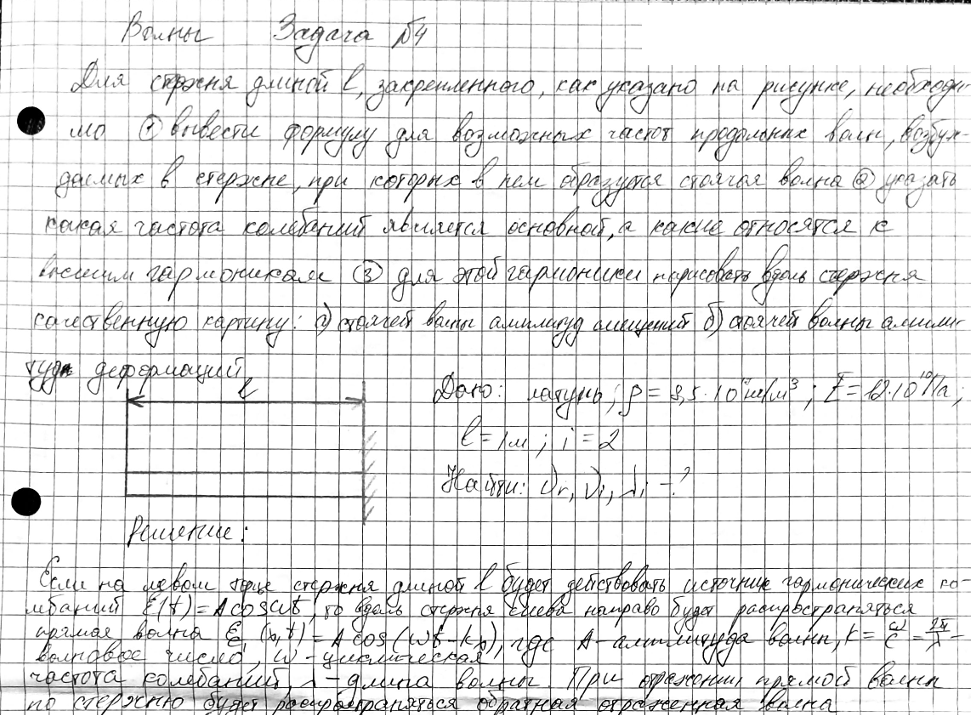 Волны Задача №4
Для стержня длиной l, закрепленного, как указано на рисунке, необходи-
мо ① вывести формулу для возможных частот продольных волн, возбуж-
даемых в стержне, при которых в нем образуется стоячая волна ② указать
какая частота колебаний является основной, а какие относятся к
высшим гармоникам ③ для этой гармоники нарисовать вдоль стержня
качественную картину: а) стоячей волны амплитуд смещений б) стоячей волны ампли-
туд деформаций
l
Дано: латунь; ρ = 8,5·10³ кг/м³; E = 12·10¹⁰ Па;
l = 1м; i = 2
Найти: νᵣ, νᵢ, λᵢ - ?
Решение:
Если на левом торце стержня длиной l будет действовать источник гармонических ко-
лебаний ξ(t) = A cos ωt, то вдоль стержня слева направо будет распространяться
прямая волна (x,t) = A cos(ωt - kx), где A - амплитуда волны, k = ω/c = 2π/λ -
волновое число, ω - циклическая
частота колебаний, λ - длина волны. При отражении прямой волны
по стержню будет распространяться обратная отраженная волна